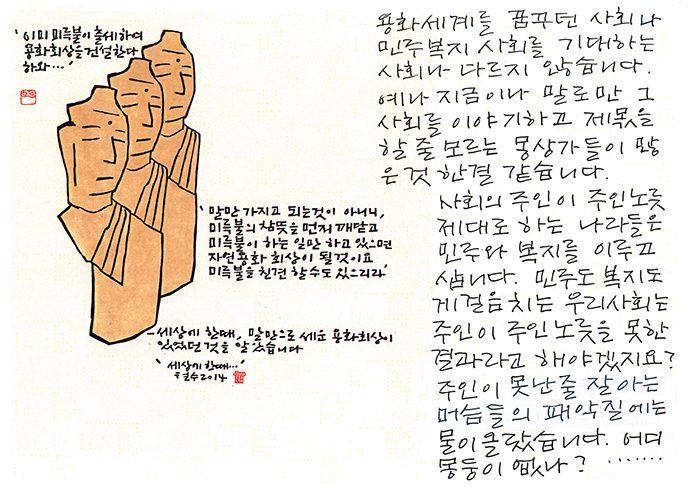 '이미 미륵불이 출세하여
용화회상을 건설한다
하와…'
'말만 가지고 되는것이 아니니,
미륵불의 참뜻을 먼저 깨닫고
미륵불이 하는 일만 하고 있으면
자연 용화 회상이 될것이요
미륵불을 친견 할수도 있으리라'
-세상에 한때, 말만으로 세운 용화회상이
있었던 것을 알았습니다
'세상에 한때…'
철수2014
용화세계를 꿈꾸던 사회나
민주복지 사회를 기대하는
사회나 다르지 않습니다.
예나 지금이나 말로만 그
사회를 이야기하고 제몫을
할 줄 모르는 몽상가들이 많
은 것 한결 같습니다.
사회의 주인이 주인노릇
제대로 하는 나라들은
민주와 복지를 이루고
삽니다. 민주도 복지도
게걸음치는 우리사회는
주인이 주인노릇을 못한
결과라고 해야겠지요?
주인이 못난줄 잘아는
머슴들의 패악질에는
몰이클랐습니다. 어디
몽둥이 없나? ……